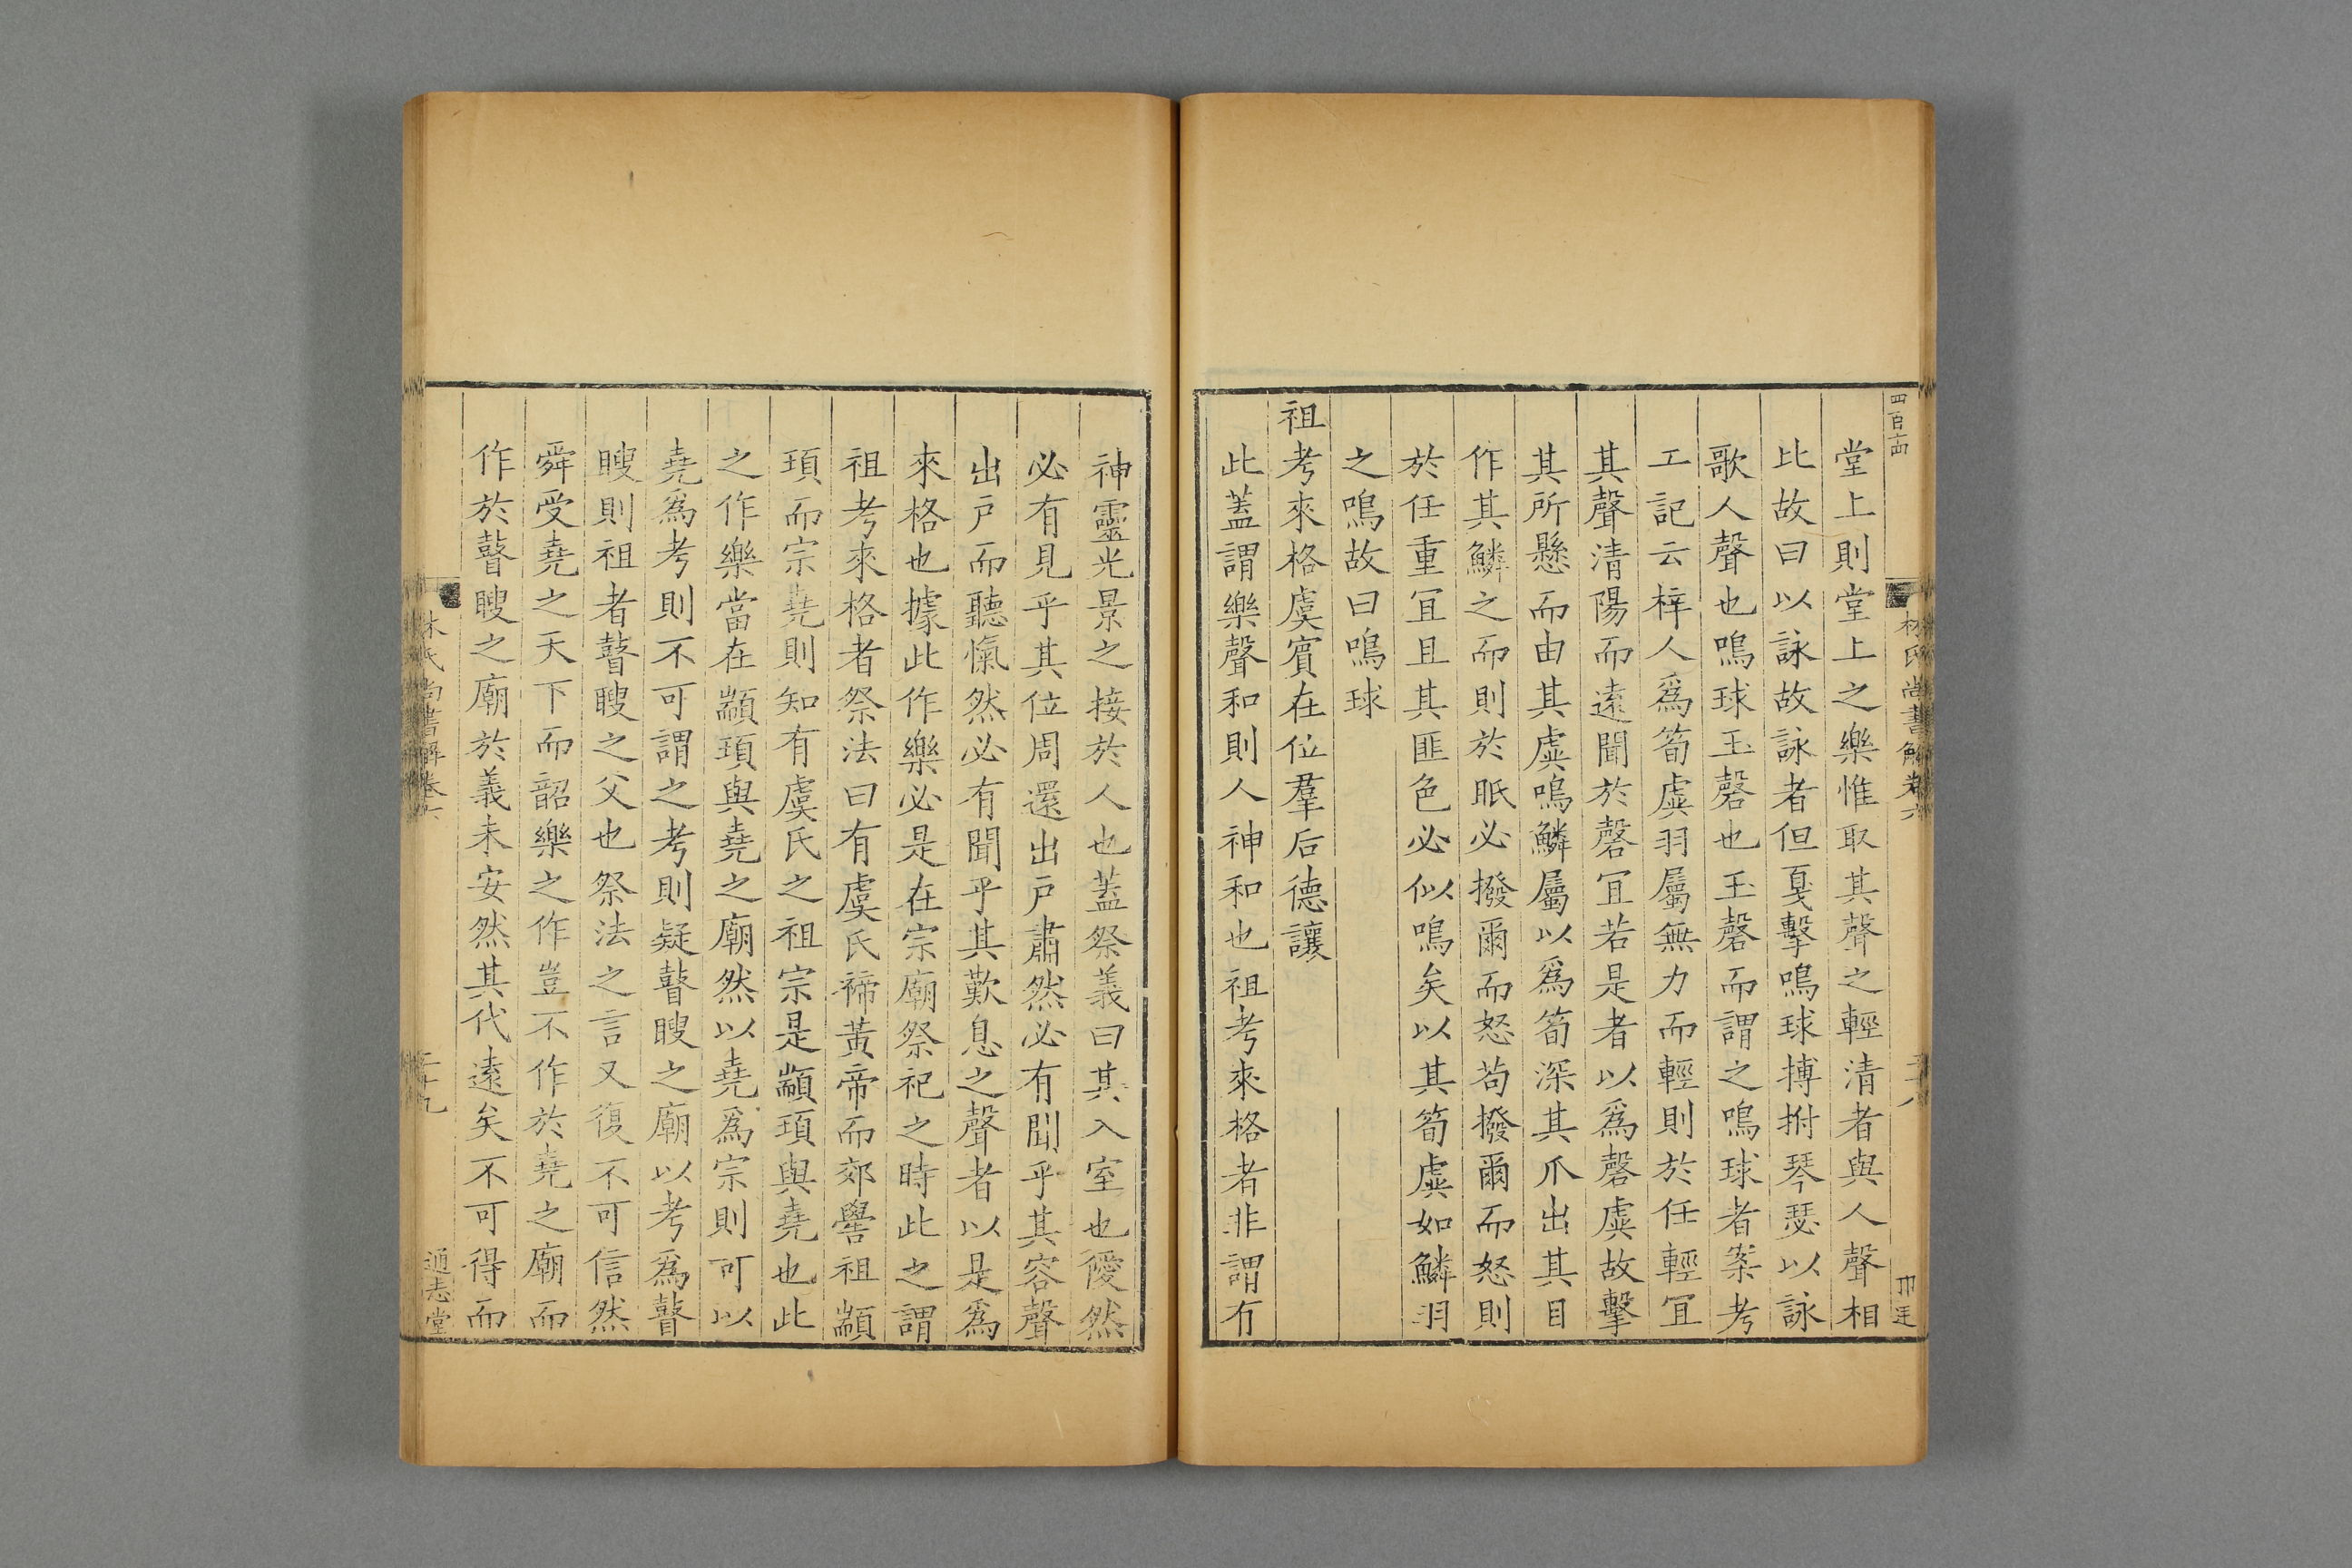 四百四
林氏尚書解卷六
堂上則堂上之樂惟取其聲之輕清者與人聲相
比故曰以詠故詠者但戛擊鳴球搏拊琴瑟以詠
歌人聲也鳴球玉磬也玉磬而謂之鳴球者案考
工記云梓人爲筍虡羽屬無力而輕則於任輕宜
其聲清陽而遠聞於磬宜若是者以爲磬虡故擊
其所懸而由其虡鳴鱗屬以爲筍深其爪出其目
作其鱗之而則於眡必撥爾而怒苟撥爾而怒則
於任重宜且其匪色必似鳴矣以其筍虡如鱗羽
之鳴故曰鳴球
祖考來格虞賓在位羣后德讓
此蓋謂樂聲和則人神和也祖考來格者非謂有
神靈光景之接於人也蓋祭義曰其入室也僾然
必有見乎其位周還出戶肅然必有聞乎其容聲
出戶而聽愾然必有聞乎其歎息之聲者以是爲
來格也據此作樂必是在宗廟祭祀之時此之謂
祖考來格者祭法曰有虞氏禘黃帝而郊嚳祖顓
頊而宗堯則知有虞氏之祖宗是顓頊與堯也此
之作樂當在顓頊與堯之廟然以堯爲宗則可以
堯爲考則不可謂之考則疑瞽瞍之廟以考爲瞽
瞍則祖者瞽瞍之父也祭法之言又復不可信然
舜受堯之天下而韶樂之作豈不作於堯之廟而
作於瞽瞍之廟於義未安然其代遠矣不可得而
林氏尚書解卷六
二十九
通志堂